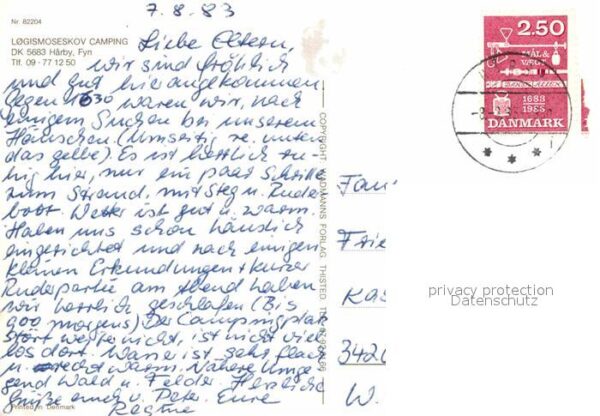 Nr. 82204
LØGISMOSESKOV CAMPING
DK 5683 Hårby, Fyn
Tlf. 09 - 77 12 50
7.8.83
Liebe Eltern,
wir sind fröhlich
und gut hier angekommen
Gegen 1630 waren wir, nach
einigem Suchen bei unserem
Häuschen (Umseitig re. unten
das gelbe) Es ist herrlich ru-
hig hier, nur ein paar Schritte
zum Strand, mit Steg u. Ruder
boot. Wetter ist gut u. warm.
Haben uns schon häuslich
eingerichtet und nach einigen
kleinen Erkundungen + kurzer
Ruderpartie am Abend haben
wir herrlich geschlafen (Bis
900 morgens) Der Campingplatz
stört weiter nicht, ist nicht viel
los dort. Wasser ist sehr flach
u. recht warm. Nähere Umge
gend Wald u. Felder. Herzliche
Grüße euch v. Peter. Eure
Regine
Printed in Denmark
COPYRIGHT FORLAG THISTED
2.50
MÅL &
VÆGT
1683
1983
DANMARK
Fam
Frie
Kas
3420
W.
privacy protection
Datenschutz